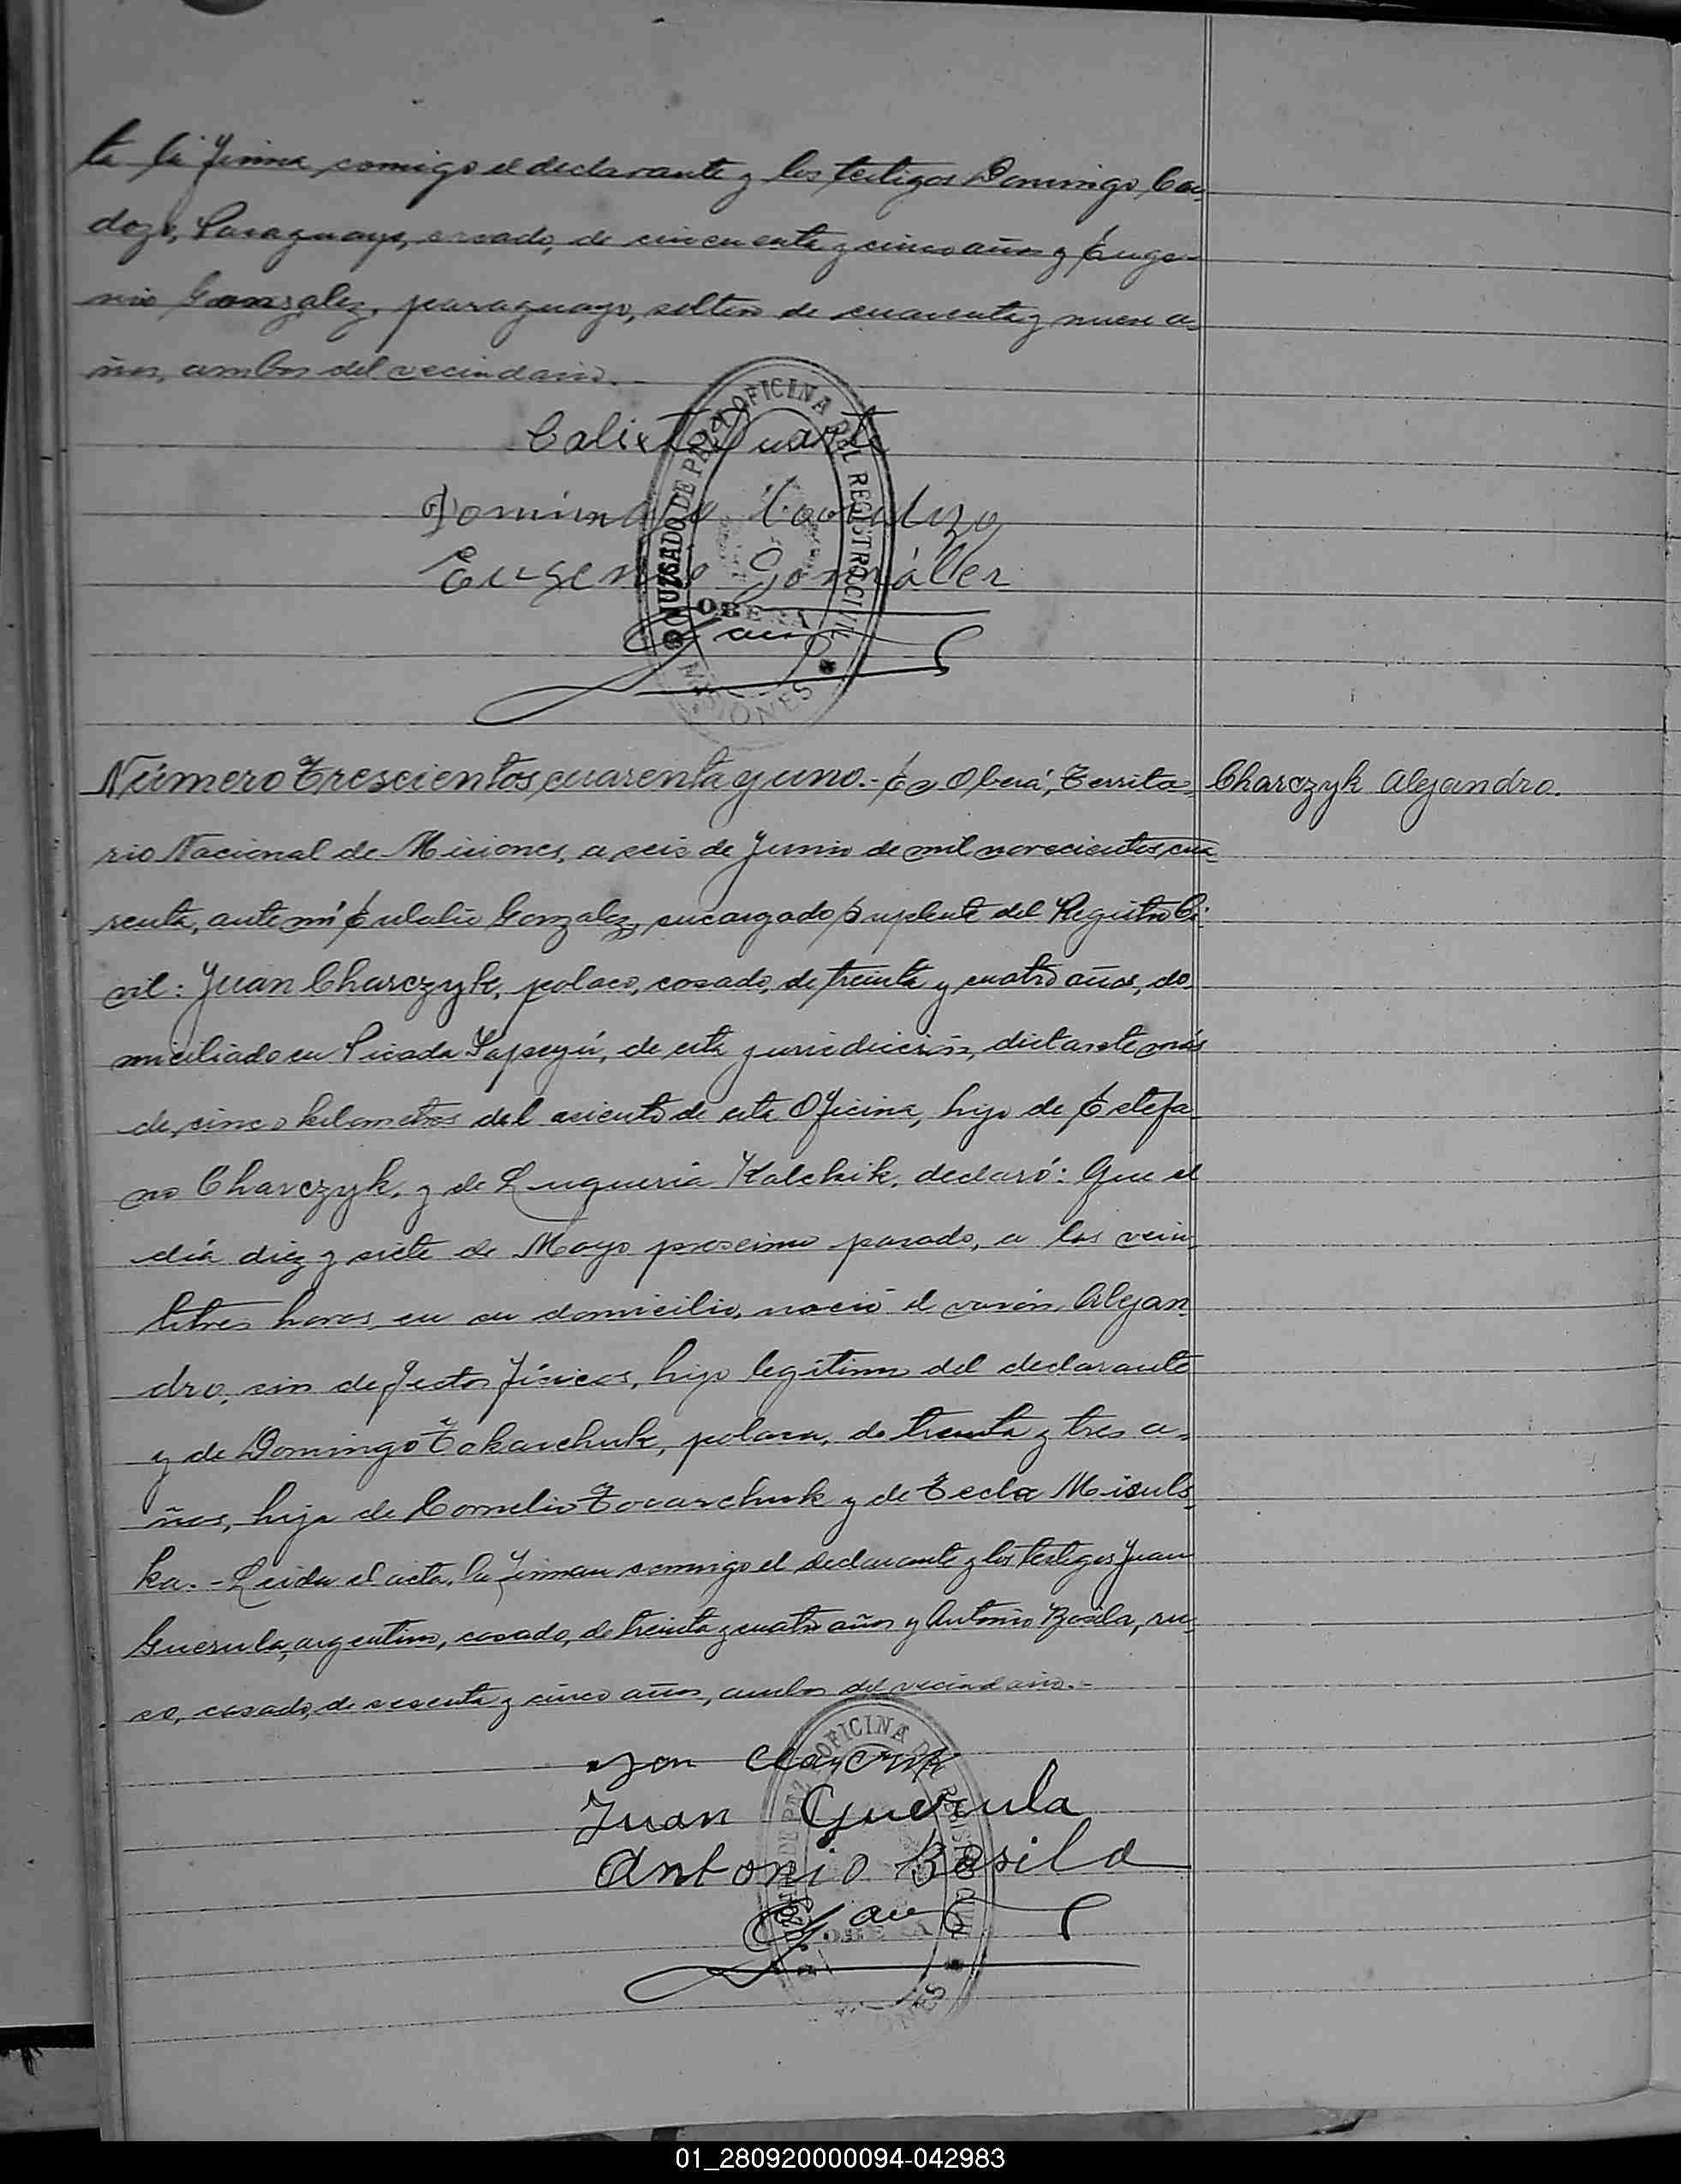 ta la firma comigo el declarante y los testigos Domingo Car
dozo, Paraguayo, casado, de cincuenta y cinco años y Euge-
nio Gonzalez, paraguayo, soltero de cuarenta y nueve a-
ños, ambos del vecindario.-
Calixto Duarte
Domingo Cardozo
Eugenio González
JUZGADO DE PAZ Y OFICINA DEL REGISTRO CIVIL
OBERA
MISIONES
Número Trescientos cuarenta y uno.- En Oberá, Territo- Charczyk Alejandro.
rio Nacional de Misiones, a seis de Junio de mil novecientos cua
renta, ante mí Eulalio Gonzalez, encargado suplente del Registro Ci-
vil: Juan Charczyk, polaco, casado, de treinta y cuatro años, do
miciliado en Picada Yapeyú, de esta jurisdicción, distante más
de cinco kilometros del asiento de esta Oficina, hijo de Estefa
no Charczyk, y de Luqueria Kalchik, declaró: Que el
día diez y siete de Mayo proximo pasado, a las vein
titres horas, en su domicilio, nació el varón Alejan
dro, sin defectos físicos, hijo legítimo del declarante
y de Domingo Tokarchuk, polaca, de treinta y tres a-
ños, hija de Cornelio Tocarchuk y de Tecla Misuls
ka.- Leida el acta, la firman comigo el declarante y los testigos Juan
Guerula, argentino, casado, de treinta y cuatro años y Antonio Basila, ru-
so, casado, de sesenta y cinco años, ambos del vecindario.-
Juan Guerula
Antonio Basila
OFICINA DEL REGISTRO CIVIL
OBERA
01_280920000094-042983